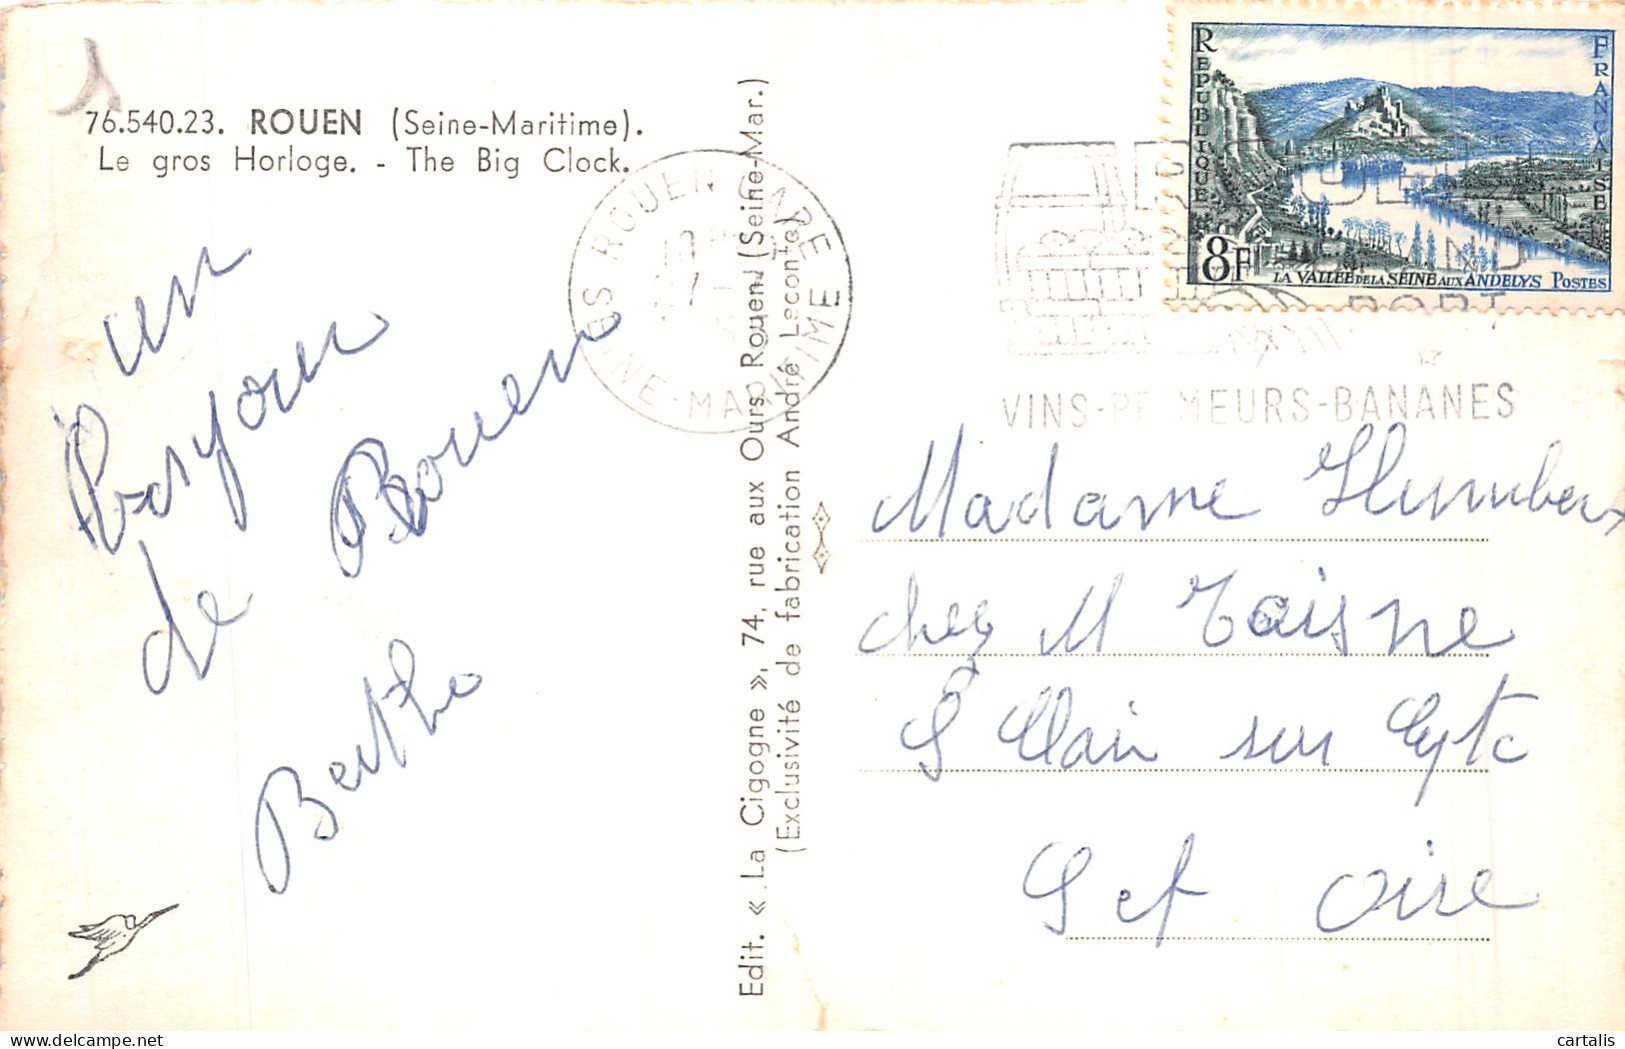 76.540.23. ROUEN (Seine-Maritime).
Le gros Horloge. - The Big Clock.
un
Bonjour
de Rouen
Berthe
Edit. « La Cigogne », 74, rue aux Ours, Rouen (Seine-Mar.)
(Exclusivité de fabrication André Lecontre)
ROUEN GARE
SEINE-MARITIME
ROUEN
GRAND
PORT
VINS-PRIMEURS-BANANES
REPUBLIQUE FRANÇAISE
8F
LA VALLÉE DE LA SEINE AUX ANDELYS POSTES
Madame Humbert
chez M Taisne
S Clair sur Epte
S et Oise
cartalis